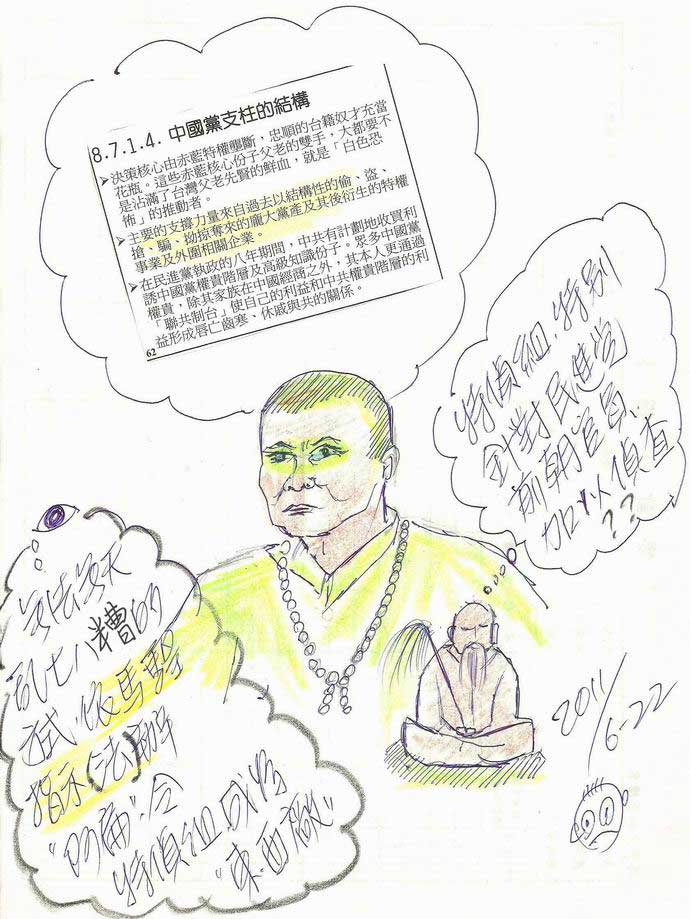 8.7.1.4. 中國黨支柱的結構
➢決策核心由赤藍特權壟斷，忠順的台籍奴才充當
花瓶。這些赤藍核心份子父老的雙手，大都要不
是沾滿了台灣父老先賢的鮮血，就是「白色恐
怖」的推動者。
➢主要的支撐力量來自過去以結構性的偷、盜、
搶、騙、拗掠奪來的龐大黨產及其後衍生的特權
事業及外圍相關企業。
➢在民進黨執政的八年期間，中共有計劃地收買利
誘中國黨權貴階層及高級知識份子。眾多中國黨
權貴，除其家族在中國經商之外，其本人更通過
「聯共制台」使自己的利益和中共權貴階層的利
益形成唇亡齒寒、休戚與共的關係。
62
特偵組.特別
針對民進党
前朝官員
加以偵查
??
無法無天
亂七八糟的
依馬騜
指示(法)辦
"的扁"令
特偵組成為
"東西廠"
2011/6-22